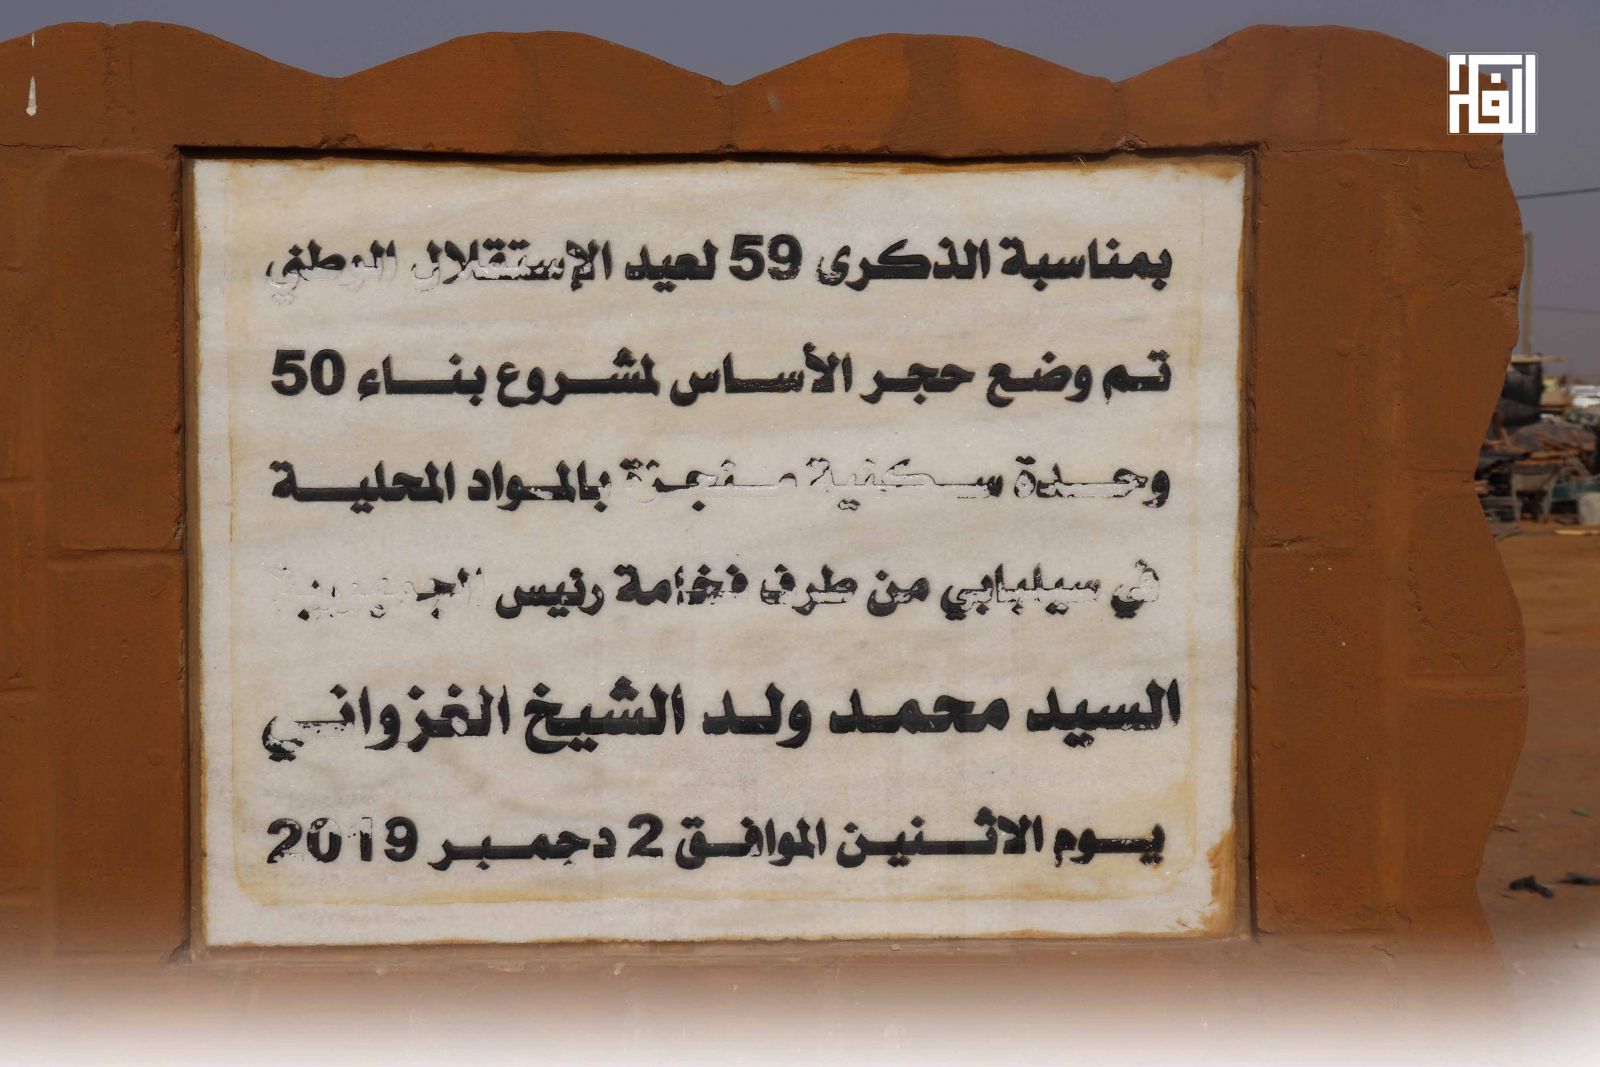 الفكر
بمناسبة الذكرى 59 لعيد الإستقلال الوطني
تم وضع حجر الأساس لمشروع بناء 50
وحدة سكنية منجزة بالمواد المحلية
في سيلبابي من طرف فخامة رئيس الجمهورية
السيد محمد ولد الشيخ الغزواني
يوم الاثنين الموافق 2 دجمبر 2019